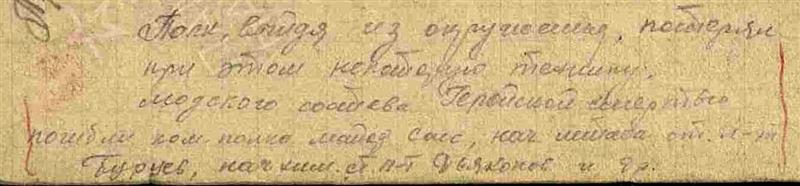 Полк, выйдя из окружения, потерял
при этом некоторую технику,
людского состава Геройской смертью
погибли ком. полка майор Сасс, нач. штаба ст. л-т
Гуруев, нач. хим. ст. л-т Дьяконов и др.